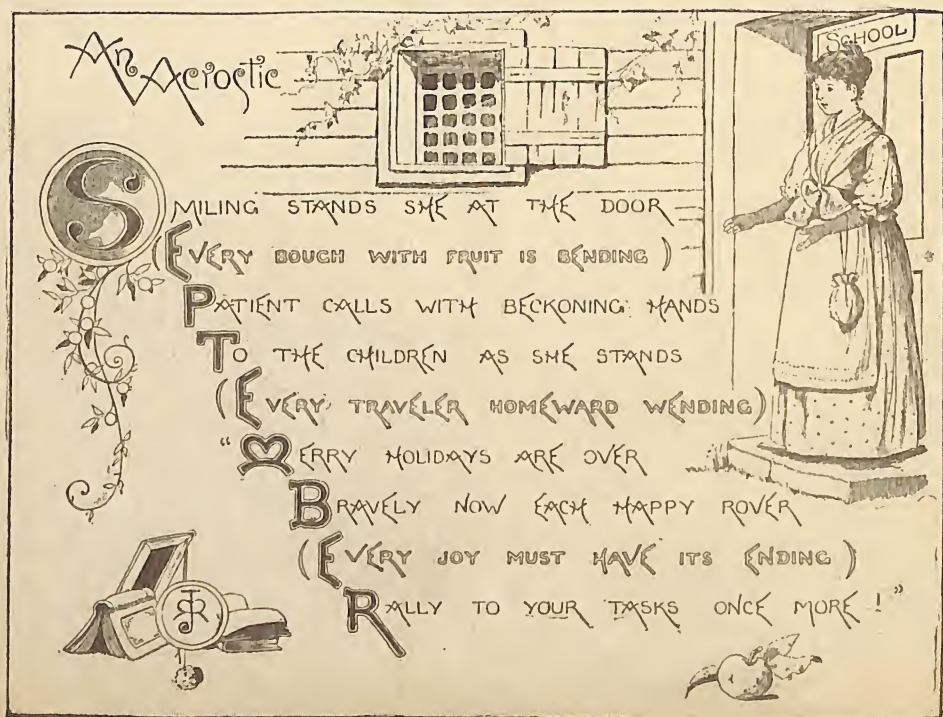 An Acrostic
SCHOOL
SMILING STANDS SHE AT THE DOOR
(EVERY BOUGH WITH FRUIT IS BENDING)
PATIENT CALLS WITH BECKONING HANDS
TO THE CHILDREN AS SHE STANDS
(EVERY TRAVELER HOMEWARD WENDING)
"MERRY HOLIDAYS ARE OVER
BRAVELY NOW EACH HAPPY ROVER
(EVERY JOY MUST HAVE ITS ENDING)
RALLY TO YOUR TASKS ONCE MORE!"